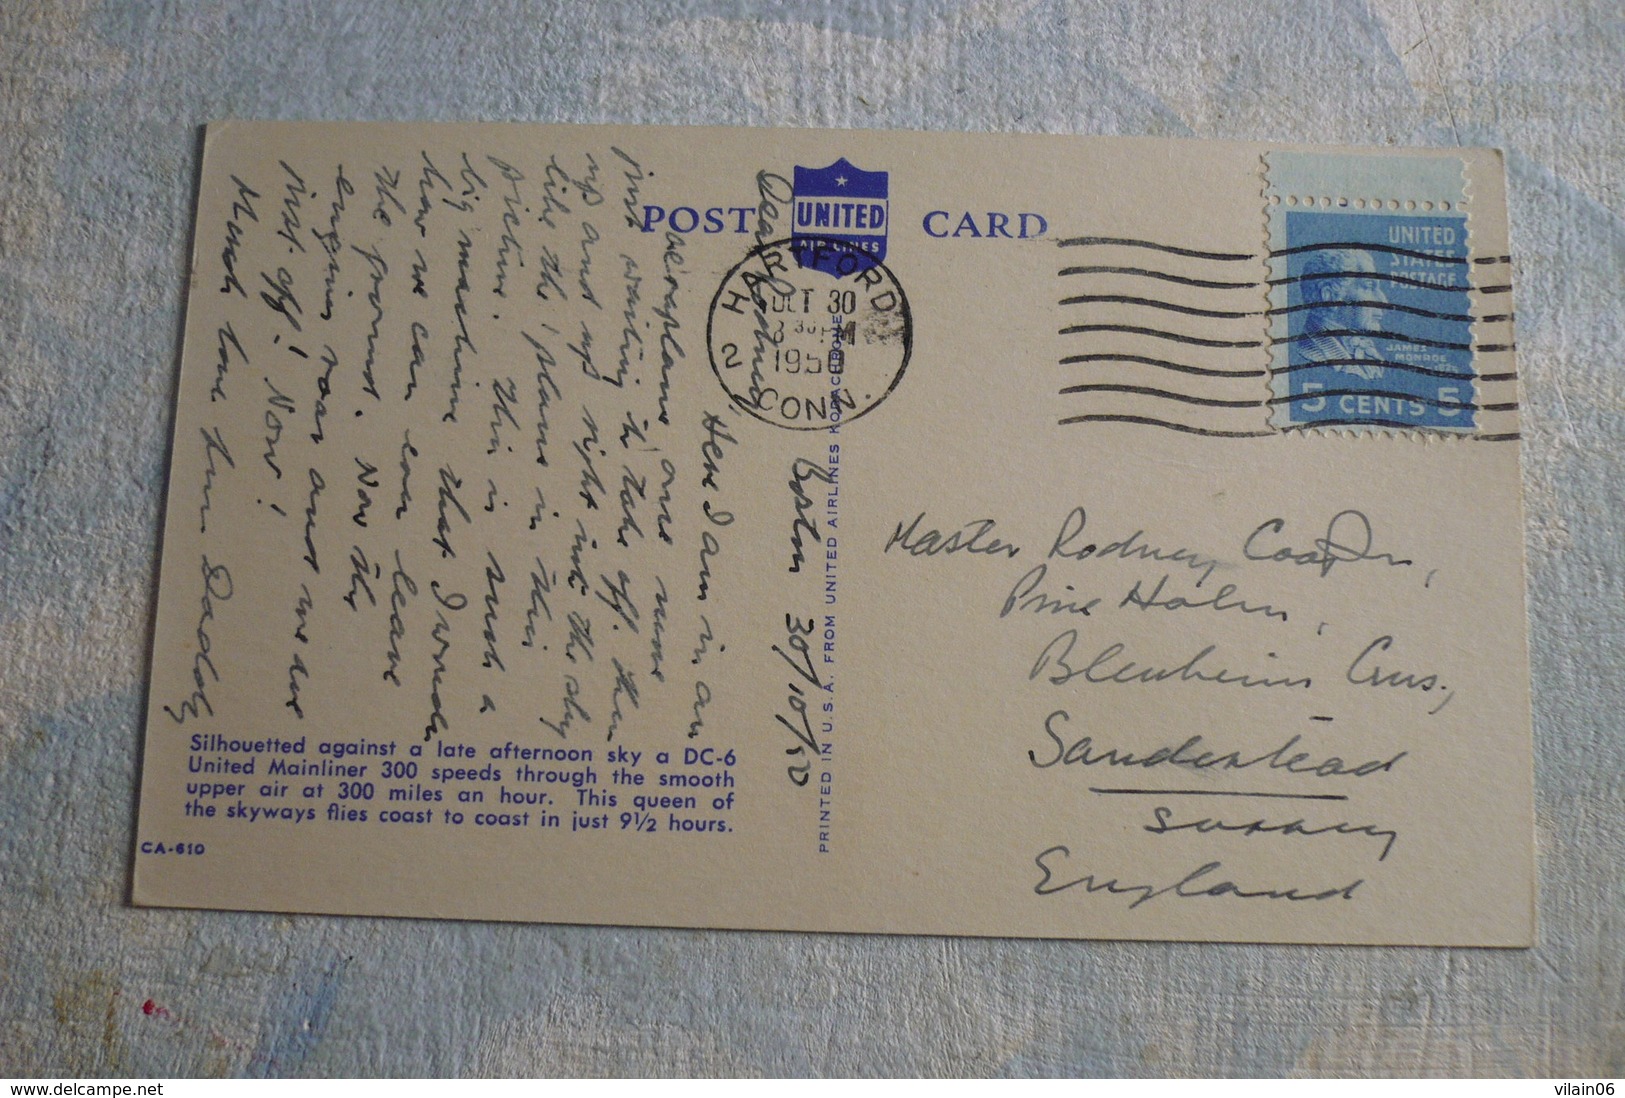 POST CARD
UNITED
AIR LINES
HARTFORD
OCT 30
1950
2 CONN.
UNITED
STATES
POSTAGE
JAMES
MONROE
5 CENTS 5
Boston 30/10/50
Dear Rodney,
Here I am in an
aeroplane once more
just waiting to take off. Then
up and up right into the sky
like the 'plane in this
picture. This is such a
big machine that I wonder
how we can ever leave
the ground. Now the
engines roar and we are
just off! Now!
Much love from Daddy
Silhouetted against a late afternoon sky a DC-6
United Mainliner 300 speeds through the smooth
upper air at 300 miles an hour. This queen of
the skyways flies coast to coast in just 9½ hours.
CA-610
PRINTED IN U.S.A. FROM UNITED AIRLINES KODACHROME
Master Rodney Cooper,
Pine Holm,
Blenheim Cres.,
Sanderstead
Surrey
England
www.delcampe.net
vilain06